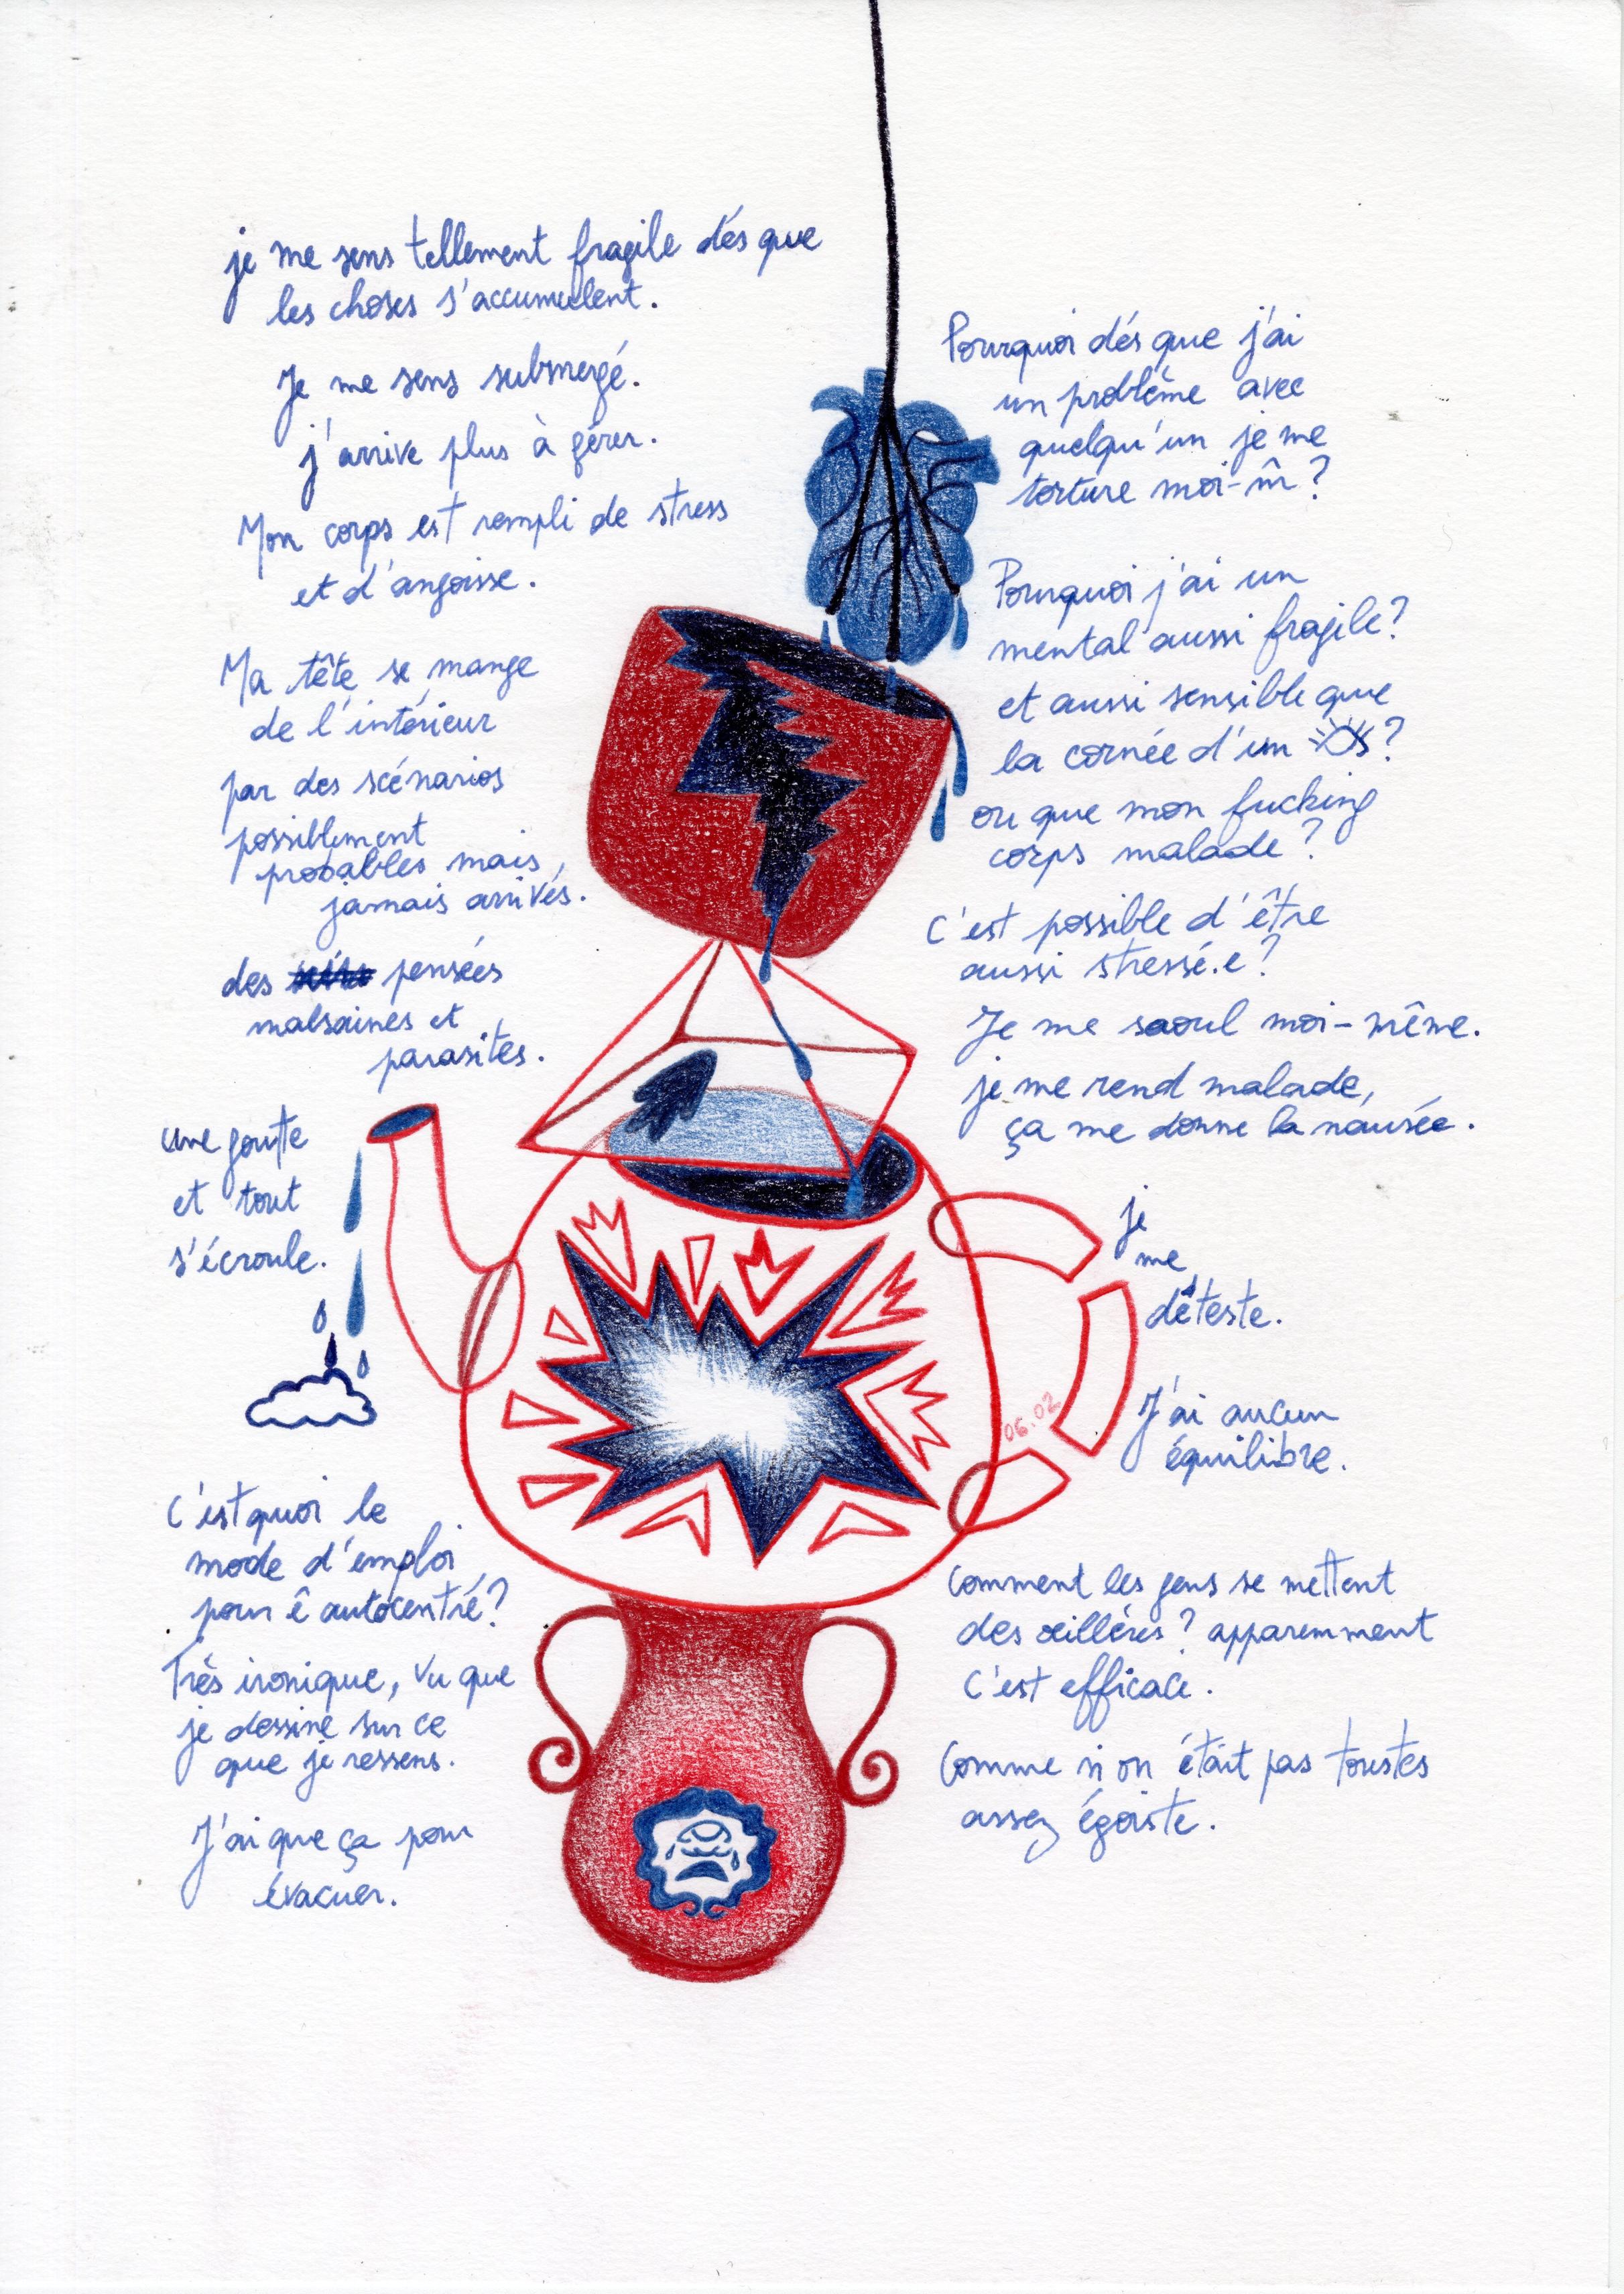 je me sens tellement fragile dés que
les choses s'accumulent.
Je me sens submergé.
j'arrive plus à gérer.
Mon corps est rempli de stress
et d'angoisse.
Ma tête se mange
de l'intérieur
par des scénarios
possiblement
probables mais
jamais arrivés.
des pensées
malsaines et
parasites.
une goutte
et tout
s'écroule.
C'est quoi le
mode d'emploi
pour ê autocentré?
Très ironique, vu que
je dessine sur ce
que je ressens.
J'ai que ça pour
évacuer.
Pourquoi dés que j'ai
un problème avec
quelqu'un je me
torture moi-m̂?
Pourquoi j'ai un
mental aussi fragile?
et aussi sensible que
la cornée d'un ?
ou que mon fucking
corps malade?
C'est possible d'être
aussi stressé.e?
Je me saoul moi-même.
je me rend malade,
ça me donne la nausée.
je
me
déteste.
06.02
J'ai aucun
équilibre.
Comment les gens se mettent
des œillères? apparemment
c'est efficace.
Comme si on était pas toustes
assez égoïste.